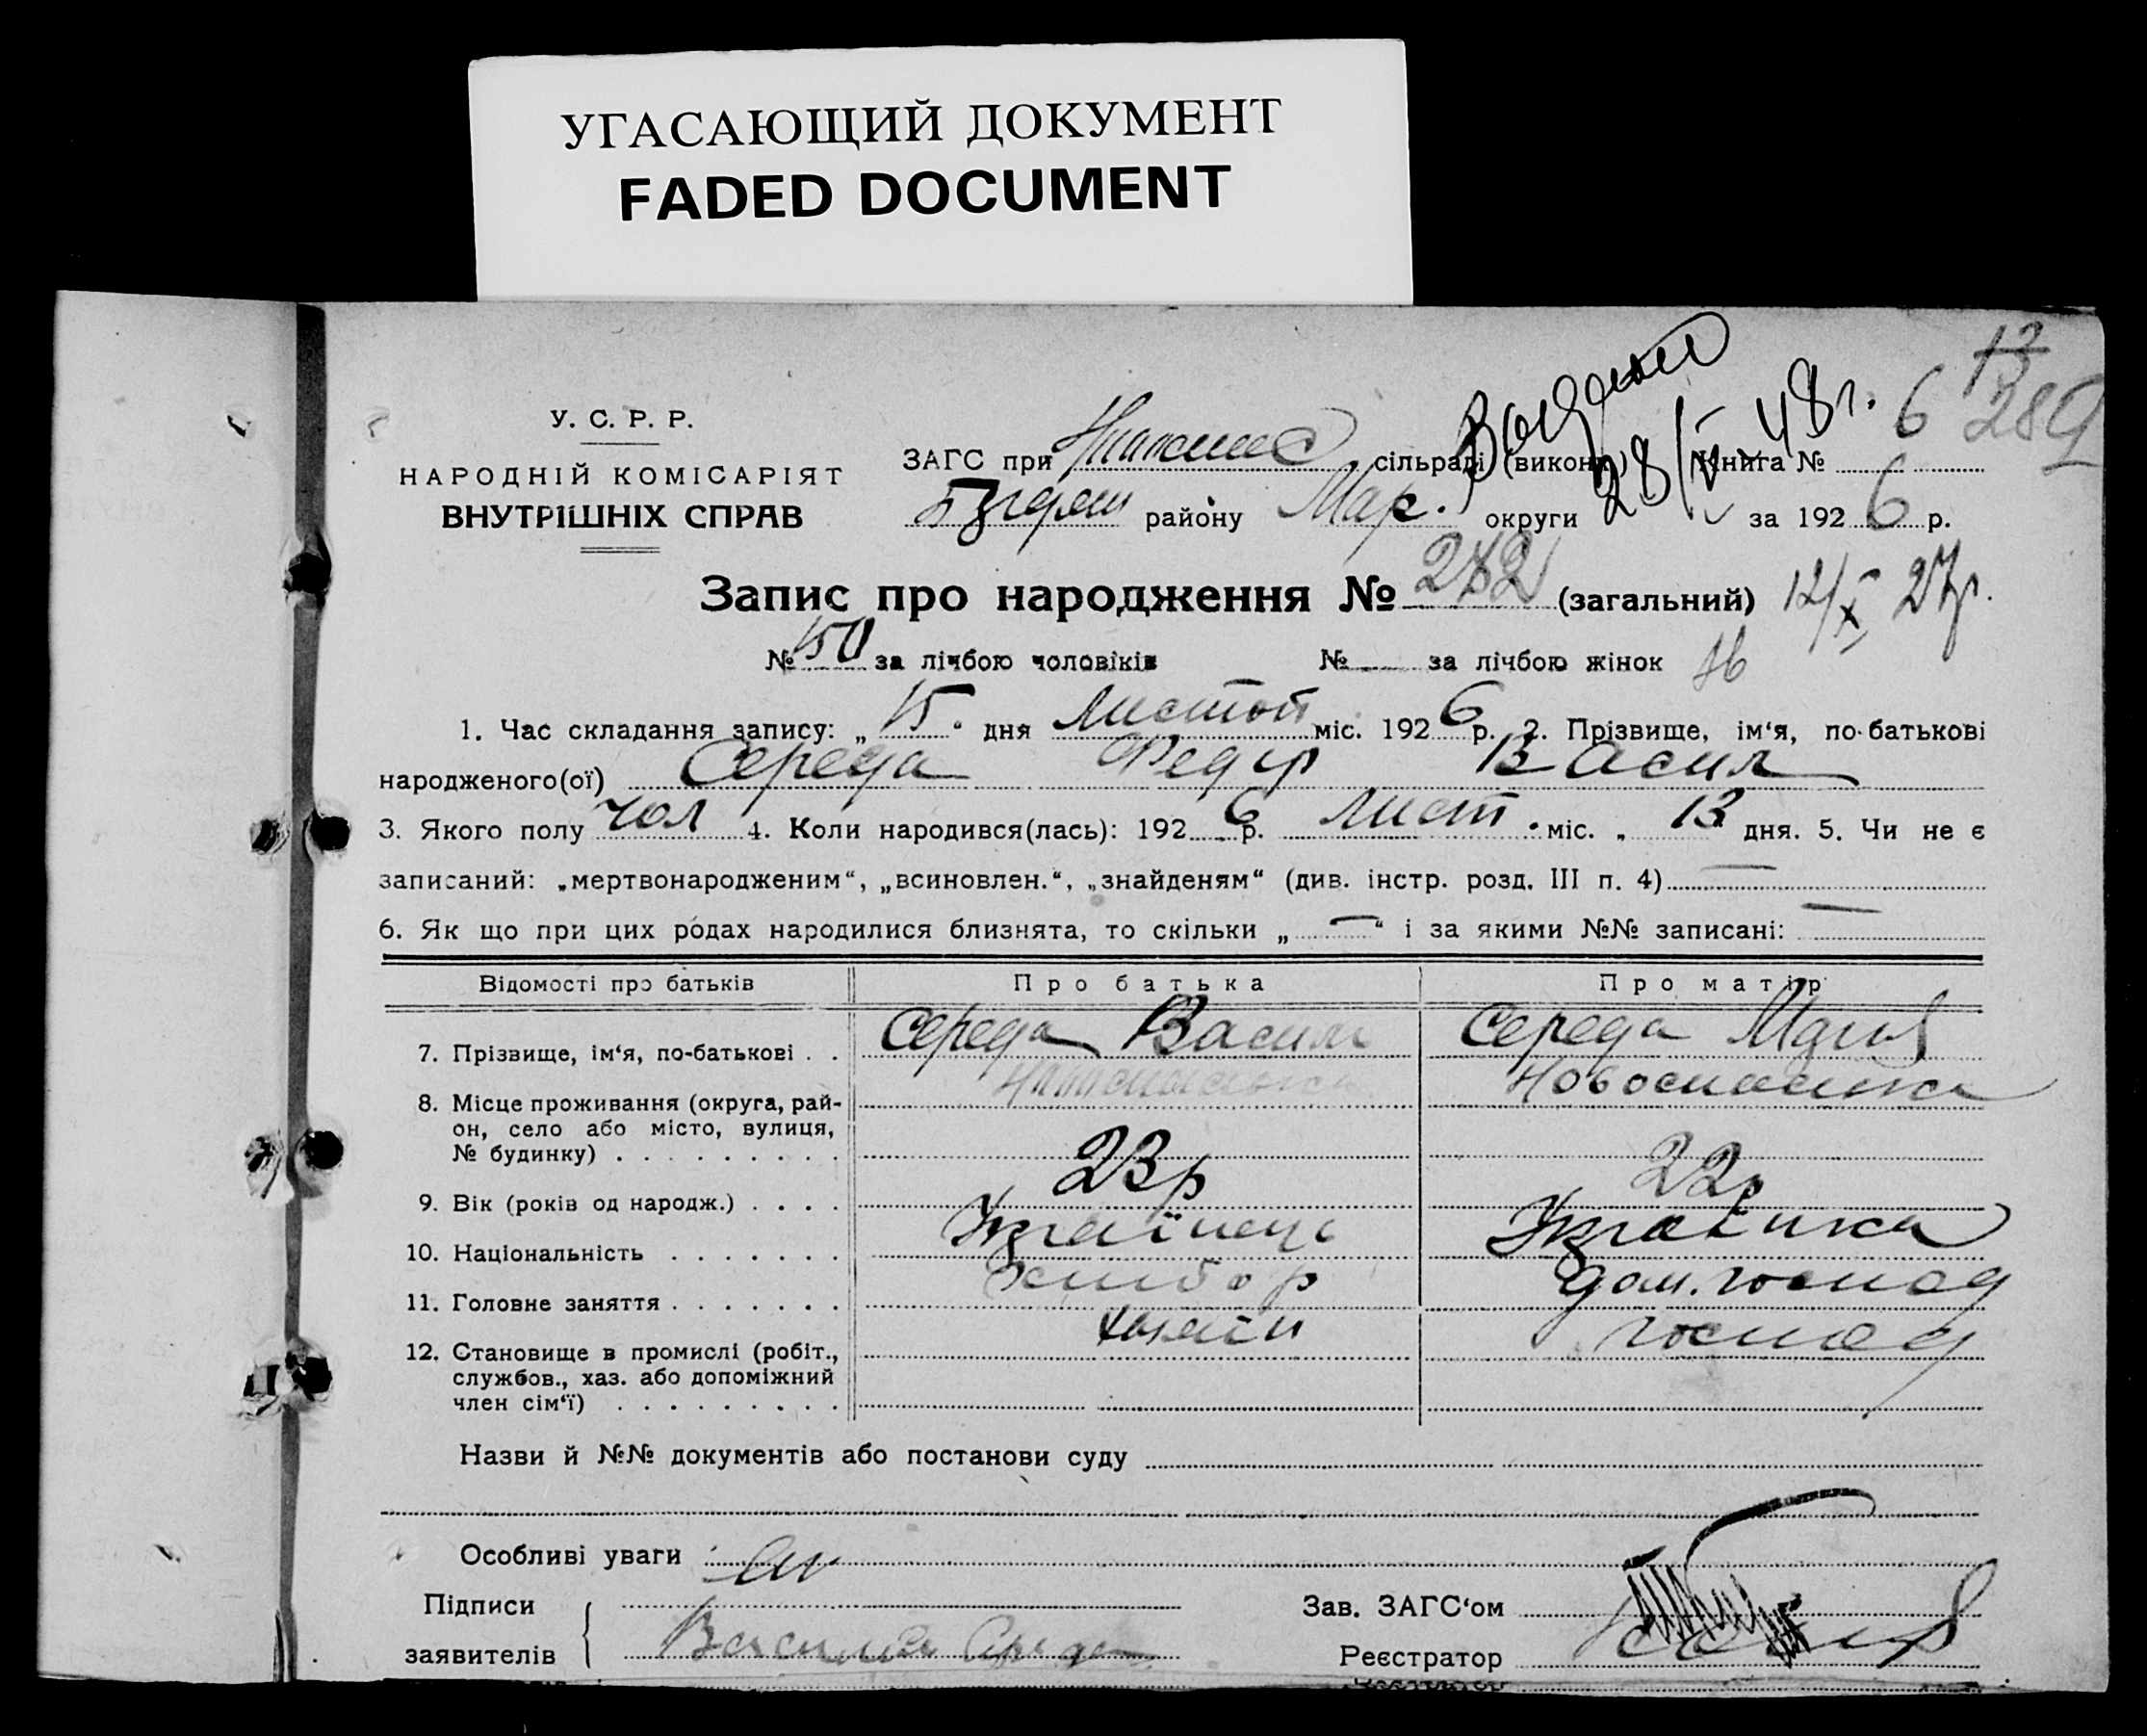 УГАСАЮЩИЙ ДОКУМЕНТ
FADED DOCUMENT
13
289
6
У. С. Р. Р.
НАРОДНІЙ КОМІСАРІЯТ
ВНУТРІШНІХ СПРАВ
ЗАГС при сільраді (викон.) Книга №
28/ 48 г.
району Мар. округи за 1926 р.
Запис про народження № 282 (загальний) 12/X 27р.
№ 150 за лічбою чоловіків № за лічбою жінок
1. Час складання запису: „ 15 " дня Листоп міс. 1926 р. 2. Прізвище, ім'я, по-батькові
народженого(ої) Середа Федір Васил
3. Якого полу чол 4. Коли народився(лась): 1926 р. Лист. міс. „ 13 дня. 5. Чи не є
записаний: „мертвонародженим“, „всиновлен.“, „знайденям“ (див. інстр. розд. III п. 4) —
6. Як що при цих родах народилися близнята, то скільки „ — “ і за якими №№ записані: —
Відомості про батьків Про батька Про матір
7. Прізвище, ім'я, по-батькові . . Середа Васил Середа
8. Місце проживання (округа, рай- Новоспасівка
он, село або місто, вулиця,
№ будинку) . . . . . . . . .
9. Вік (років од народж.) . . . . 23р 22р
10. Національність . . . . . . . Українець Українка
11. Головне заняття . . . . . . . хлібор дом. господ
12. Становище в промислі (робіт., хазяїн господ
службов., хаз. або допоміжний
член сім'ї) . . . . . . . . .
Назви й №№ документів або постанови суду
Особливі уваги
Підписи Зав. ЗАГС'ом
заявителів Середа Реєстратор